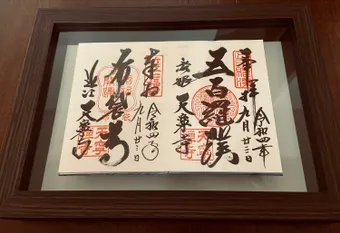 奉拝
令和四年
九月廿三日
五百羅漢
天寧寺
奉拝
令和四年
九月廿三日
布袋尊
近江
天寧寺